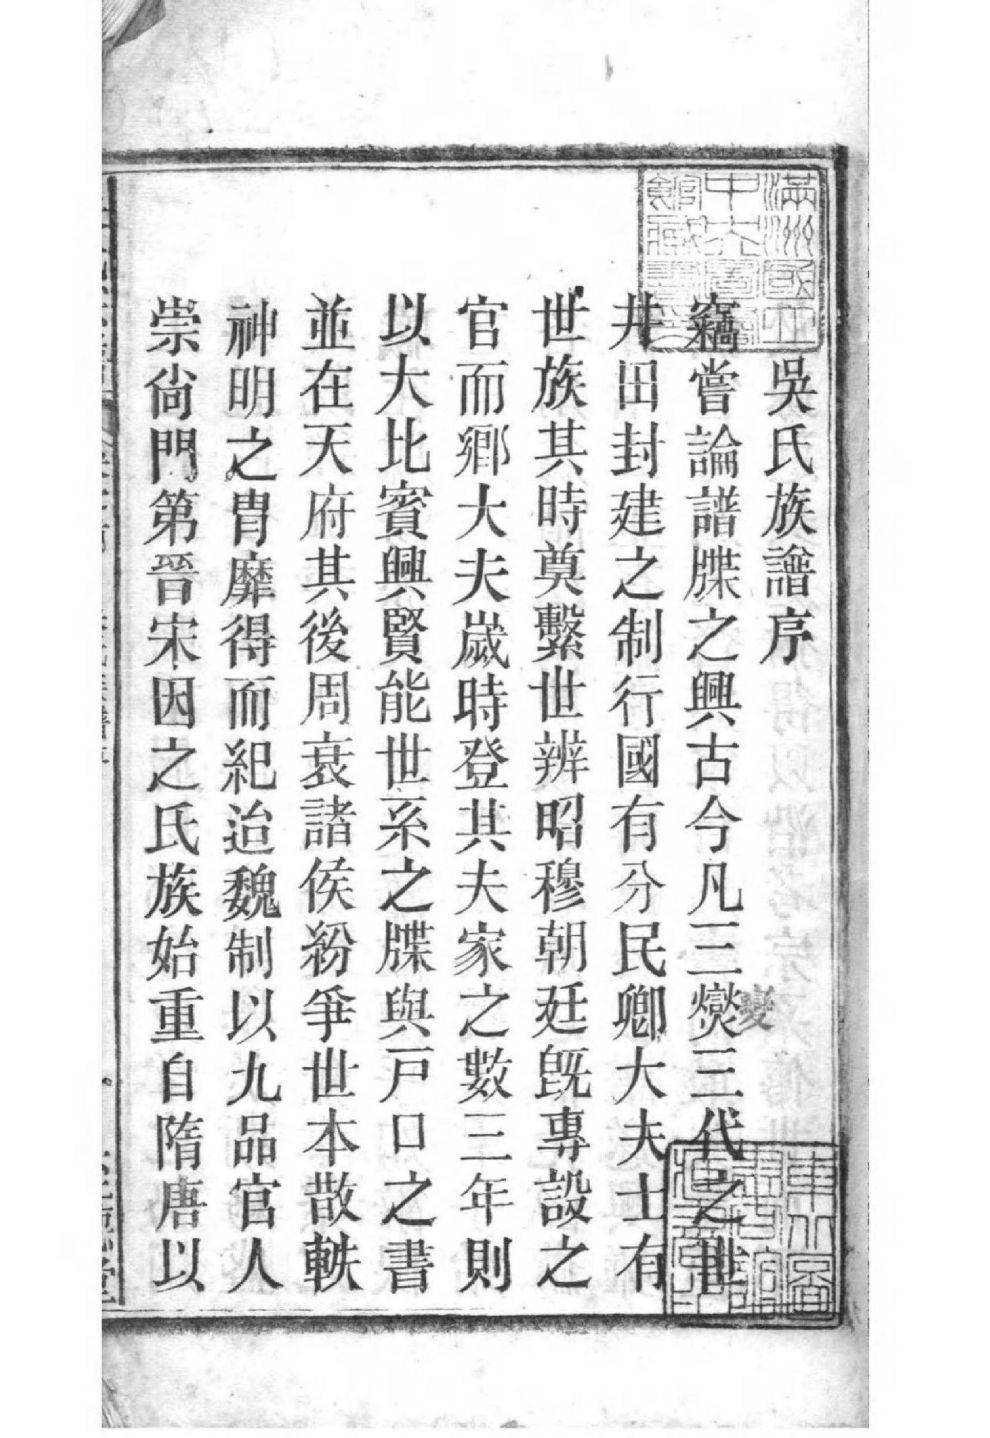 吳氏族譜序
竊嘗論譜牒之興古今凡三燮三代之世
變
井田封建之制行國有分民卿大夫士有
世族其時奠繫世辨昭穆朝廷既專設之
官而鄉大夫歲時登其夫家之數三年則
以大比賓興賢能世系之牒與戸口之書
並在天府其後周衰諸侯紛爭世本散軼
神明之胄靡得而紀迨魏制以九品官人
崇尙門第晉宋因之氏族始重自隋唐以
滿洲國立
中央圖書
館籌備處